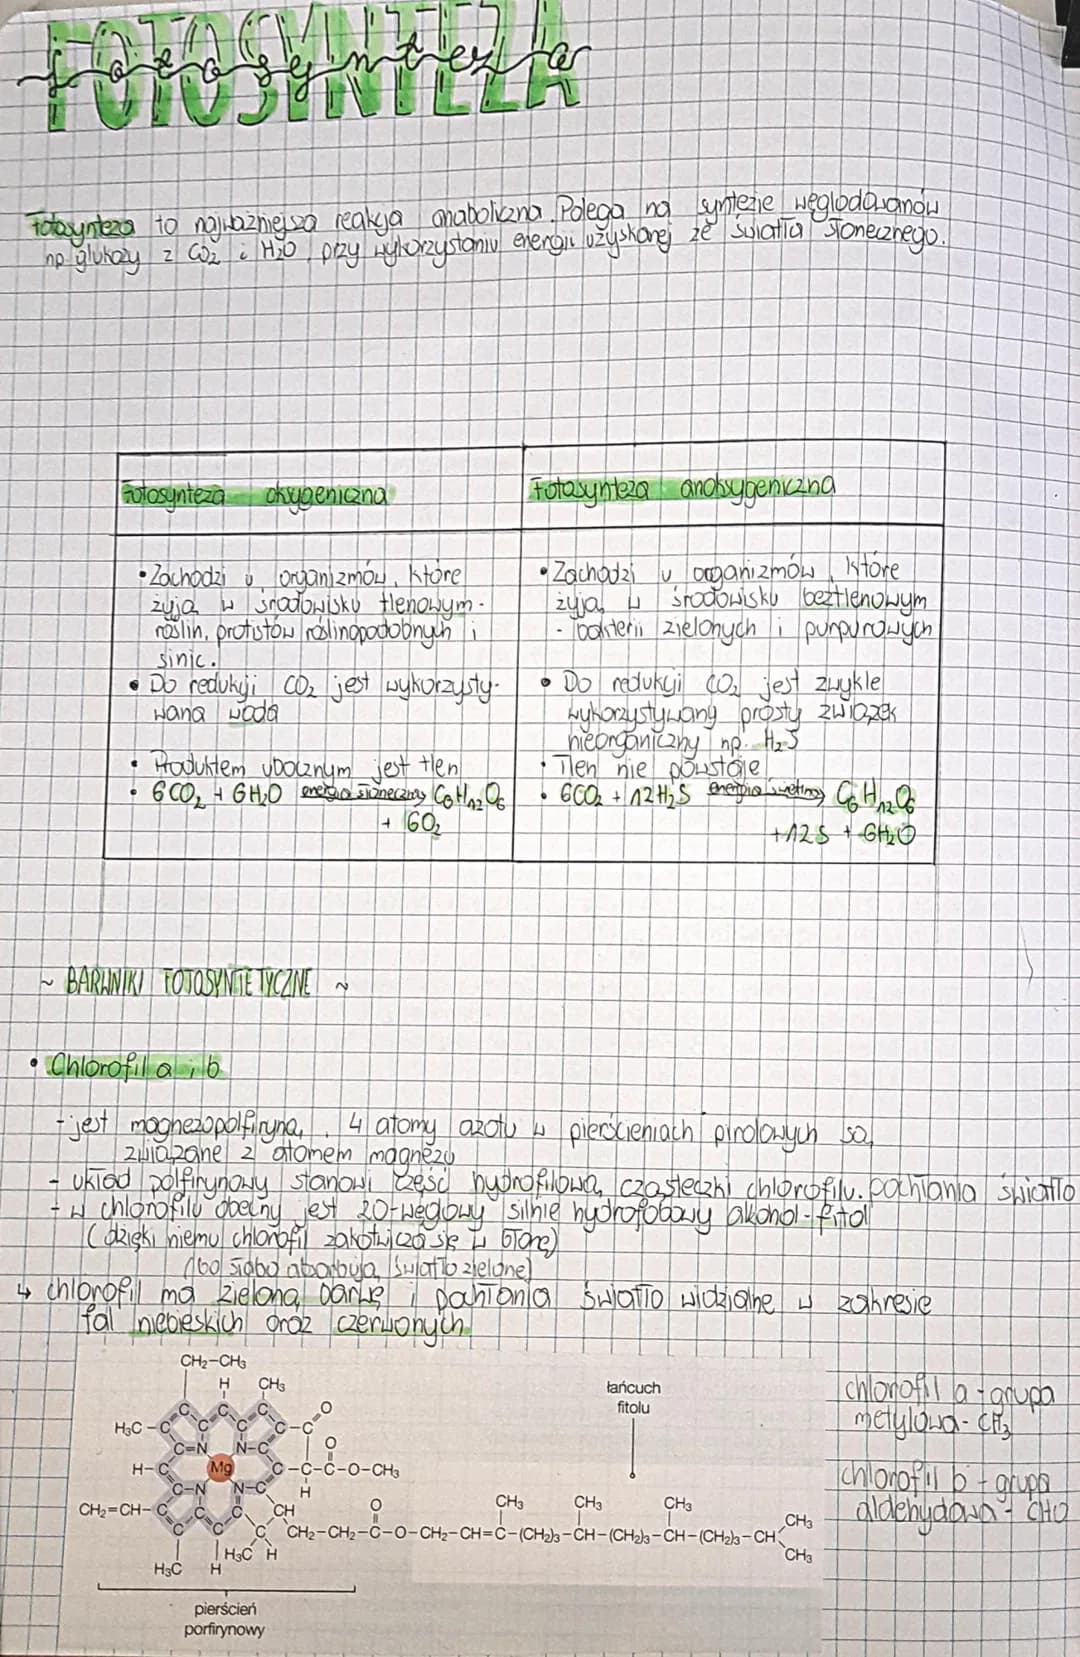 FOTOSYNTEZA
fotosynteza
Fotosynteza to najważniejsza reakcja anaboliczna. Polega na syntezie węglodowanów
np. glukozy z CO2 i H2O, przy wykorzystaniu energii uzyskanej ze światła słonecznego.
Fotosynteza oksygeniczna
• Zachodzi u organizmów, które
żyją w środowisku tlenowym -
roślin, protistów roślinopodobnych i
sinic.
• Do redukcji CO2 jest wykorzysty-
wana woda
• Produktem ubocznym jest tlen
• 6CO2 + 6H2O energia słoneczna C6H12O6
+ 6O2
Fotosynteza anoksygeniczna
• Zachodzi u organizmów, które
żyją w środowisku beztlenowym
- bakterii zielonych i purpurowych
• Do redukcji CO2 jest zwykle
wykorzystywany prosty związek
nieorganiczny np. H2S
• Tlen nie powstaje
• 6CO2 + 12H2S energia świetlna C6H12O6
+12S + 6H2O
~ BARWNIKI FOTOSYNTETYCZNE ~
• Chlorofil a i b
- jest magnezopolfiryną, 4 atomy azotu w pierścieniach pirolowych są
związane z atomem magnezu
- układ polfirynowy stanowi część hydrofilową cząsteczki chlorofilu. pochłania światło
- w chlorofilu obecny jest 20-węglowy silnie hydrofobowy alkohol - fitol
(dzięki niemu chlorofil zakotwicza się w błonę)
(bo słabo absorbują światło zielone)
↳ chlorofil ma zieloną barwę i pochłania światło widzialne w zakresie
fal niebieskich oraz czerwonych
CH2-CH3
H CH3
H3C-C C C C C-C O
C=N N-C O
H-C Mg C-C-C-O-CH3
C-N N-C H
CH2=CH-C C CH O CH3 CH3 CH3 CH3
C C C CH2-CH2-C-O-CH2-CH=C-(CH2)3-CH-(CH2)3-CH-(CH2)3-CH
H3C H3C H CH3
H
łańcuch
fitolu
pierścień
porfirynowy
chlorofil a - grupa
metylowa - CH3
chlorofil b - grupa
aldehydowa - CHO